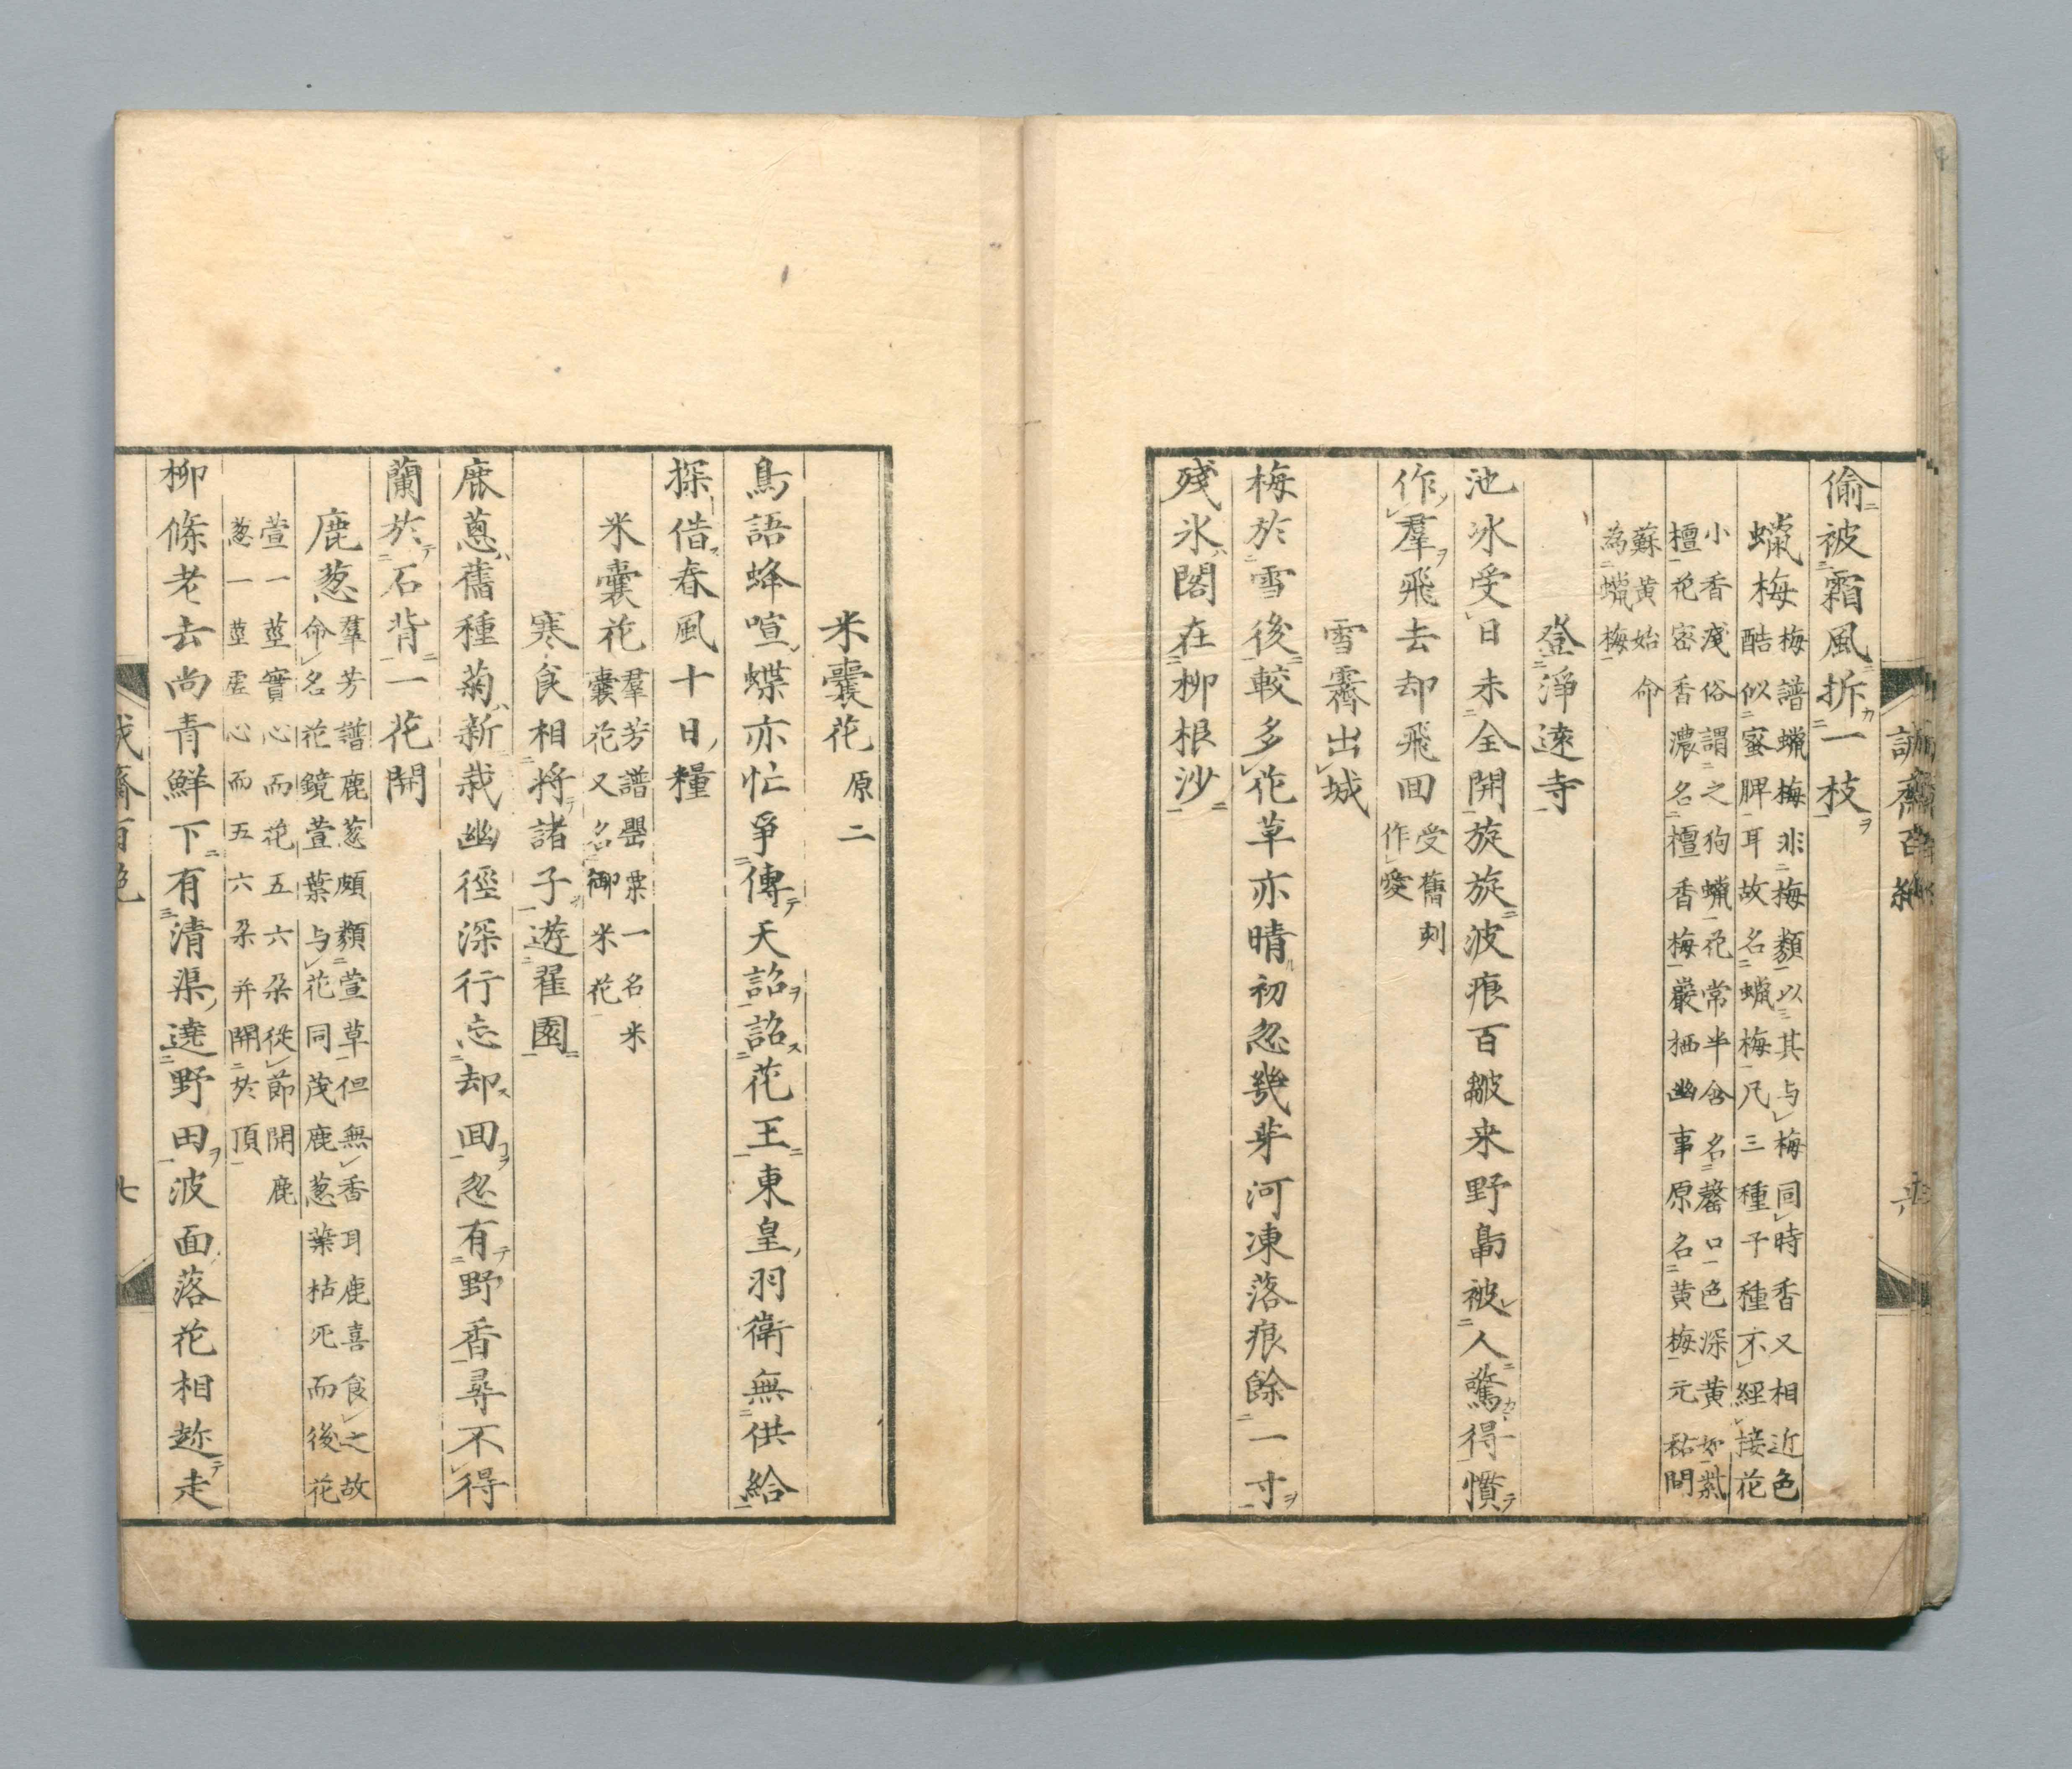 誠齋百絶
六
偷被霜風折一枝
蠟梅
梅譜蠟梅非梅類以其与梅同時香又相近色
酷似蜜脾耳故名蠟梅凡三種子種不經接花
小香淺俗謂之狗蠟花常半含名罄口色深黄如紫
檀花密香濃名檀香梅巖栖幽事原名黄梅元祐間
蘇黄始命
為蠟梅
登淨遠寺
池冰受日未全開旋旋波痕百皺来野鳥被人驚得慣
作羣飛去却飛回
受舊刻
作愛
雪霽出城
梅於雪後較多花草亦晴初忽幾芽河凍落痕餘一寸
殘氷閣在柳根沙
米囊花原二
鳥語蜂喧蝶亦忙爭傳天詔詔花王東皇羽衛無供給
探借春風十日糧
米囊花
羣芳譜罌粟一名米
囊花又名御米花
寒食相將諸子遊翟園
鹿蔥舊種菊新栽幽徑深行忘却回忽有野香尋不得
蘭於石背一花開
鹿葱
羣芳譜鹿葱頗類萱草但無香耳鹿喜食之故
命名花鏡萱葉与花同茂鹿葱葉枯死而後花
萱一莖實心而花五六朶從節開鹿
葱一莖虚心而五六朶并開於頂
柳條老去尚青鮮下有清渠遶野田波面落花相趂走
誠齋百絶
七